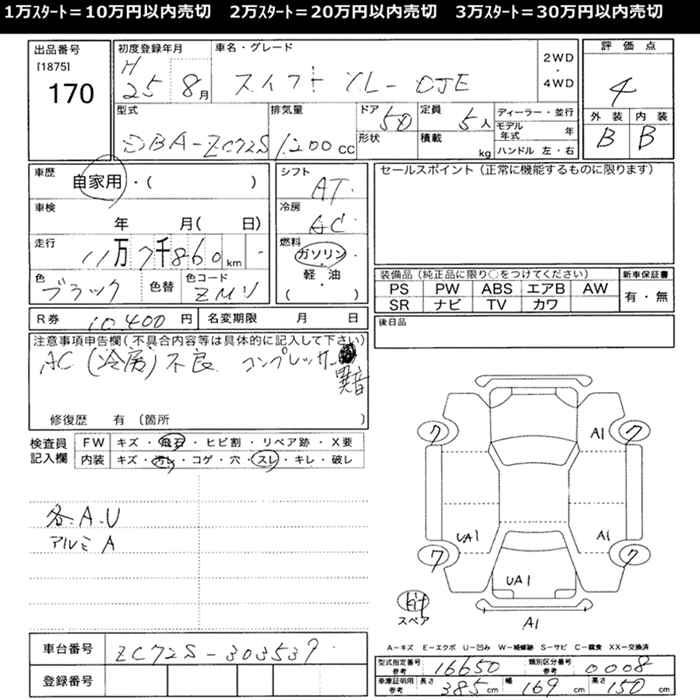 1万ｽﾀｰﾄ＝10万円以内売切　2万ｽﾀｰﾄ＝20万円以内売切　3万ｽﾀｰﾄ＝30万円以内売切
出品番号 [1875] 170
初度登録年月 H25 8月
車名・グレード スイフト XL-DJE
2WD・4WD
評価点 4
外装 B 内装 B
型式 DBA-ZC72S
排気量 1200cc
ドア 5D
形状
定員 5人
積載 kg
ディーラー・並行
モデル年式 年
ハンドル 左・右
車歴 自家用・( )
車検 年 月( 日)
走行 11万7千860km
色 ブラック 色替 色コード ZMV
シフト AT
冷房 AC
燃料 ガソリン・軽・油 ( )
セールスポイント（正常に機能するものに限ります）
装備品（純正品に限り○をつけてください）
PS PW ABS エアB AW
SR ナビ TV カワ
新車保証書 有・無
R券 10,400円 名変期限 月 日
後日品
注意事項申告欄(不具合内容等は具体的に記入して下さい)
AC(冷房)不良 コンプレッサー
異音
修復歴 有（箇所 ）
検査員記入欄
FW キズ・飛石・ヒビ割・リペア跡・X要
内装 キズ・汚レ・コゲ・穴・スレ・キレ・破レ
各A.U
アルミA
フ フ
A1
UA1 A1
フ フ
UA1
スペア
A1
A－キズ E－エクボ U－凹み W－補修跡 S－サビ C－腐食 XX－交換済
車台番号 ZC72S-303537
登録番号
型式指定番号 参考 16650
類別区分番号 参考 0008
車庫証明用 参考 長さ 385cm 幅 169cm 高さ 150cm